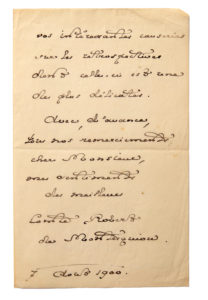 vos intéressantes causeries
sur les rétrospectives
dont celle-ci est une
des plus délicates.
Avec, d'avance,
tous nos remerciements
cher Monsieur,
mes sentiments
des meilleurs
Comte Robert
de Montesquiou.
7 Août 1900.